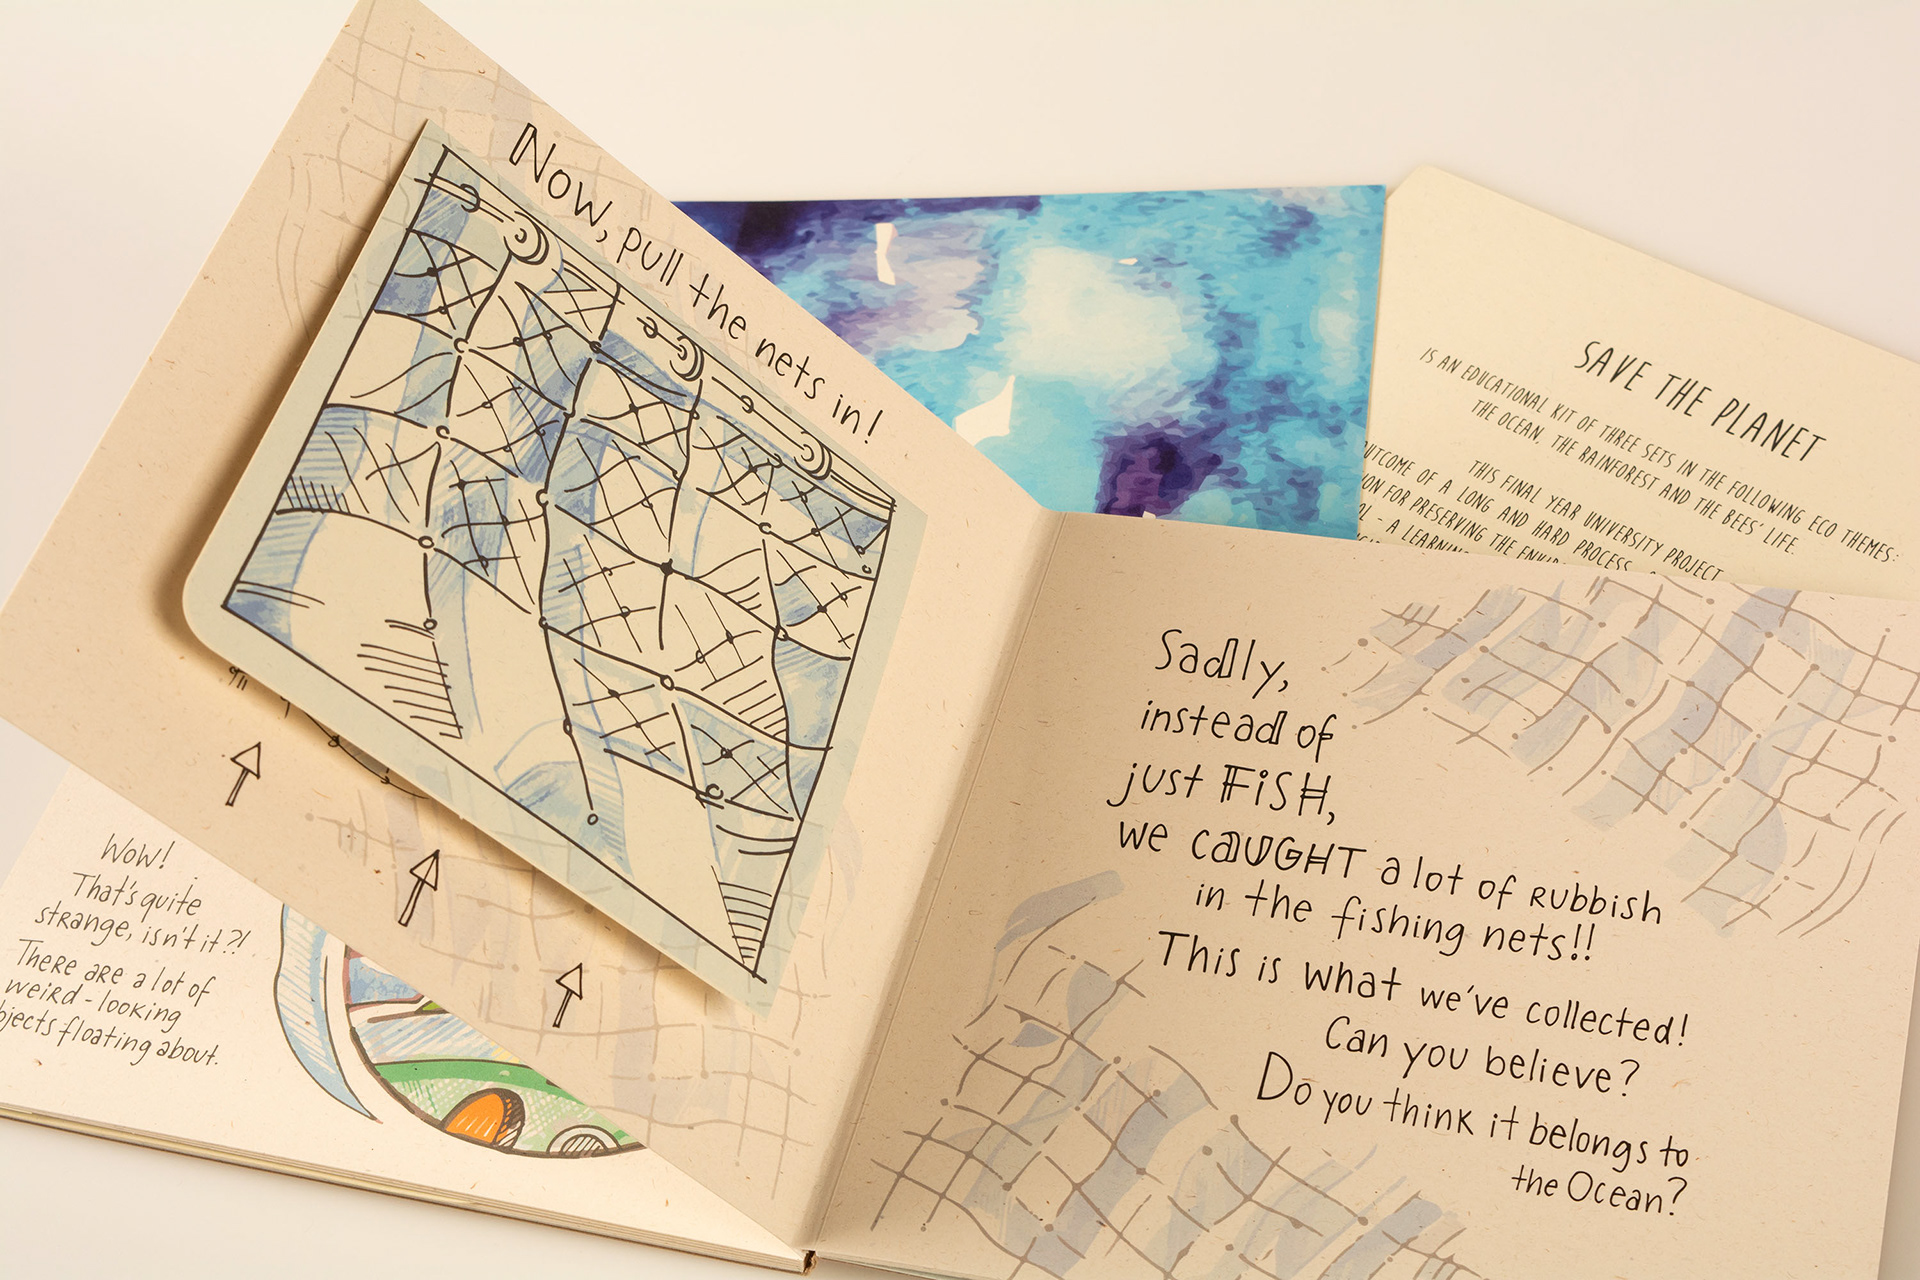 Now, pull the nets in!
Wow!
That's quite
strange, isn't it?!
There are a lot of
weird-looking
floating about.
Sadly,
instead of
just FiSH,
we CAUGHT a lot of Rubbish
in the fishing nets!!
This is what we've collected!
Can you believe?
Do you think it belongs to
the Ocean?
SAVE THE PLANET
IS AN EDUCATIONAL KIT OF THREE SETS IN THE FOLLOWING ECO THEMES:
THE OCEAN, THE RAINFOREST AND THE BEES' LIFE.
THIS FINAL YEAR UNIVERSITY PROJECT
OF A LONG AND HARD PROCESS
FOR PRESERVING THE
- A